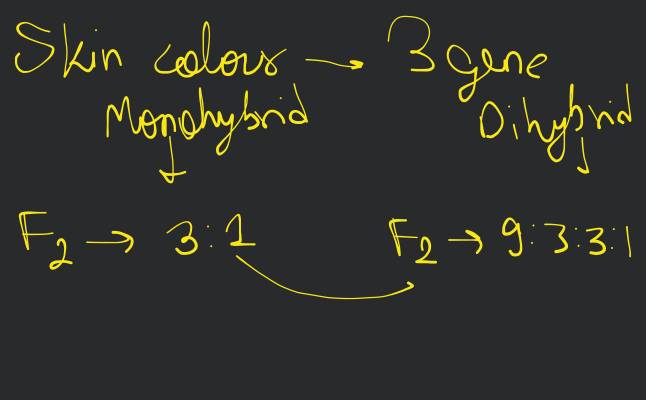 Skin colour → 3 gene
Monohybrid Dihybrid
F₂ → 3:1 F₂ → 9:3:3:1